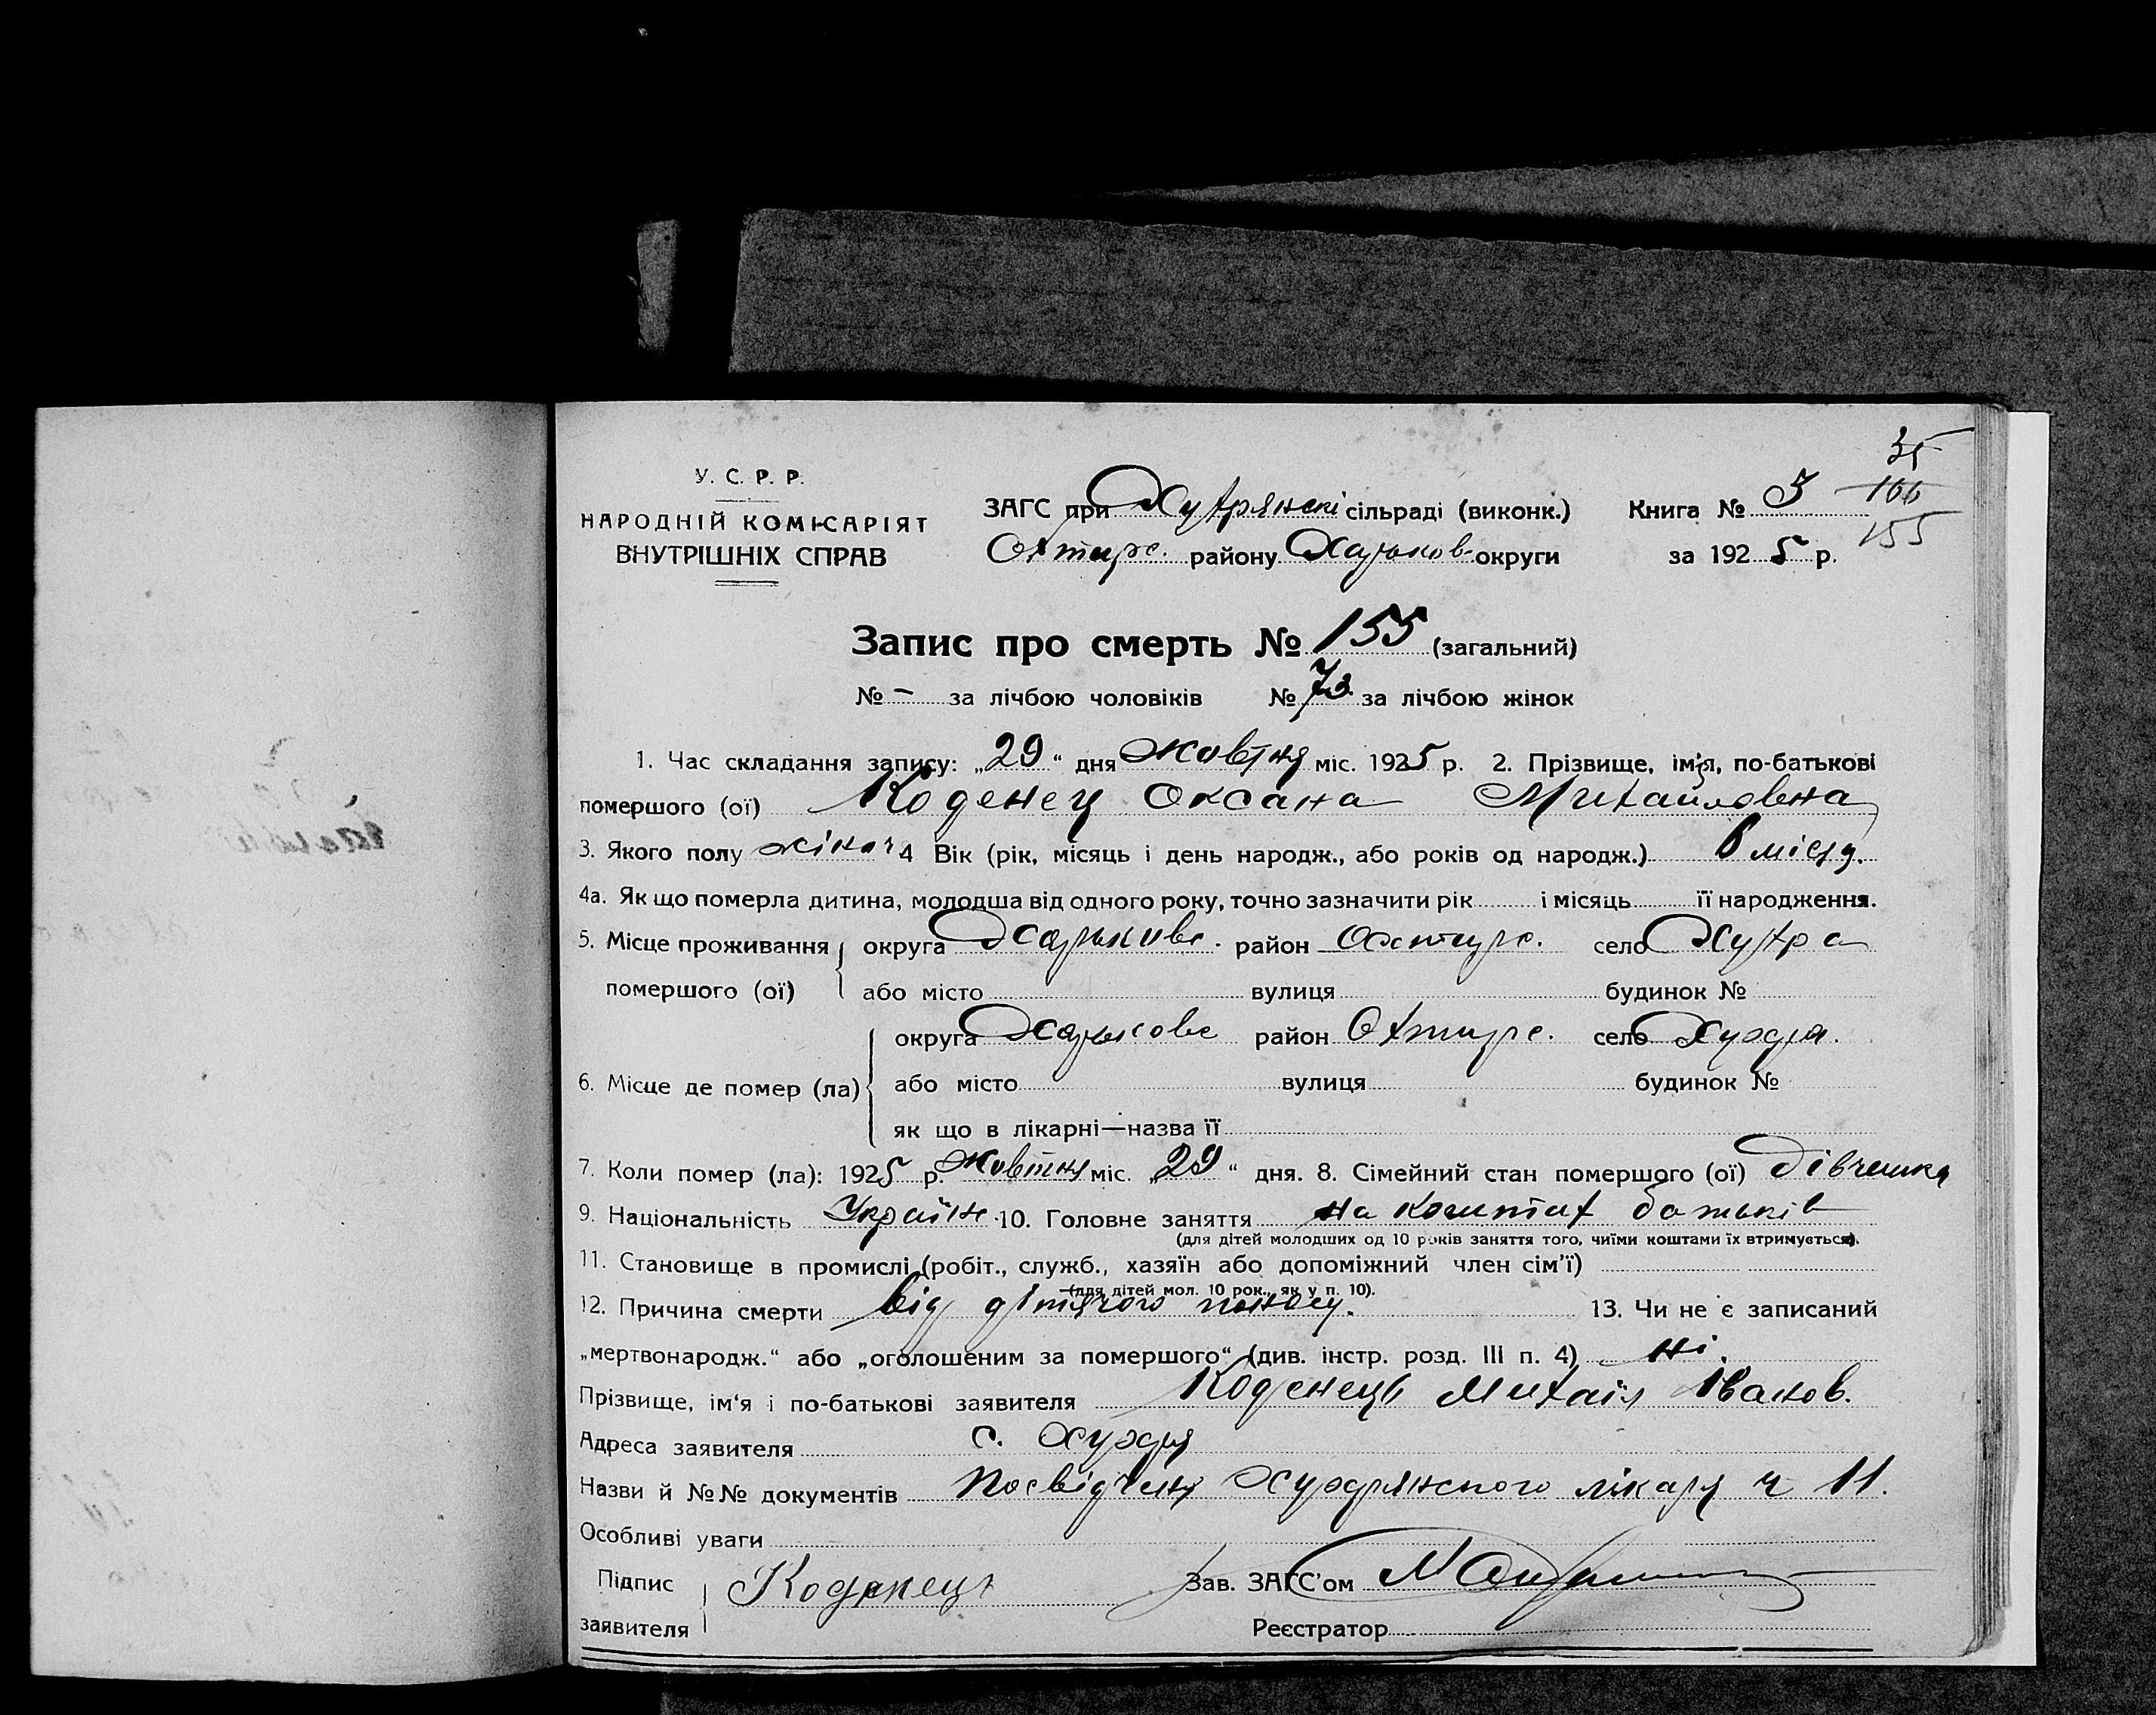 35
У. С. Р. Р.
ЗАГС при Хухрянскі сільраді (виконк.) Книга № 3 166
НАРОДНІЙ КОМІСАРІЯТ
ВНУТРІШНІХ СПРАВ
Охтирс. району Харьков. округи за 1925 р. 155
Запис про смерть № 155 (загальний)
№ – за лічбою чоловіків № 73 за лічбою жінок
1. Час складання запису: „29“ дня жовтня міс. 1925 р. 2. Прізвище, ім'я, по-батькові
помершого (ої) Коденец Оксана Михайловна
3. Якого полу жіноч 4 Вік (рік, місяць і день народж., або років од народж.) 6 місяц.
4а. Як що померла дитина, молодша від одного року, точно зазначити рік і місяць її народження.
5. Місце проживання округа Харькове. район Охтирс. село Хухра
помершого (ої) або місто вулиця будинок №
округа Харькове район Охтирс. село Хухря.
6. Місце де помер (ла) або місто вулиця будинок №
як що в лікарні—назва її
7. Коли помер (ла): 1925 р. жовтня міс. „29“ дня. 8. Сімейний стан помершого (ої) дівчешка
9. Національність Україн. 10. Головне заняття на коштах батьків
(для дітей молодших од 10 років заняття того, чиїми коштами їх втримується).
11. Становище в промислі (робіт., служб., хазяїн або допоміжний член сім'ї)
(для дітей мол. 10 рок., як у п. 10).
12. Причина смерти від дітячого поносу. 13. Чи не є записаний
„мертвонародж.“ або „оголошеним за помершого“ (див. інстр. розд. III п. 4) ні.
Прізвище, ім'я і по-батькові заявителя Коденець Михаіл Іванов.
Адреса заявителя с. Хухря
Назви й №№ документів посвідченя Хухрянского лікаря ч 11.
Особливі уваги
Підпис Коденець Зав. ЗАГС'ом
заявителя Реєстратор